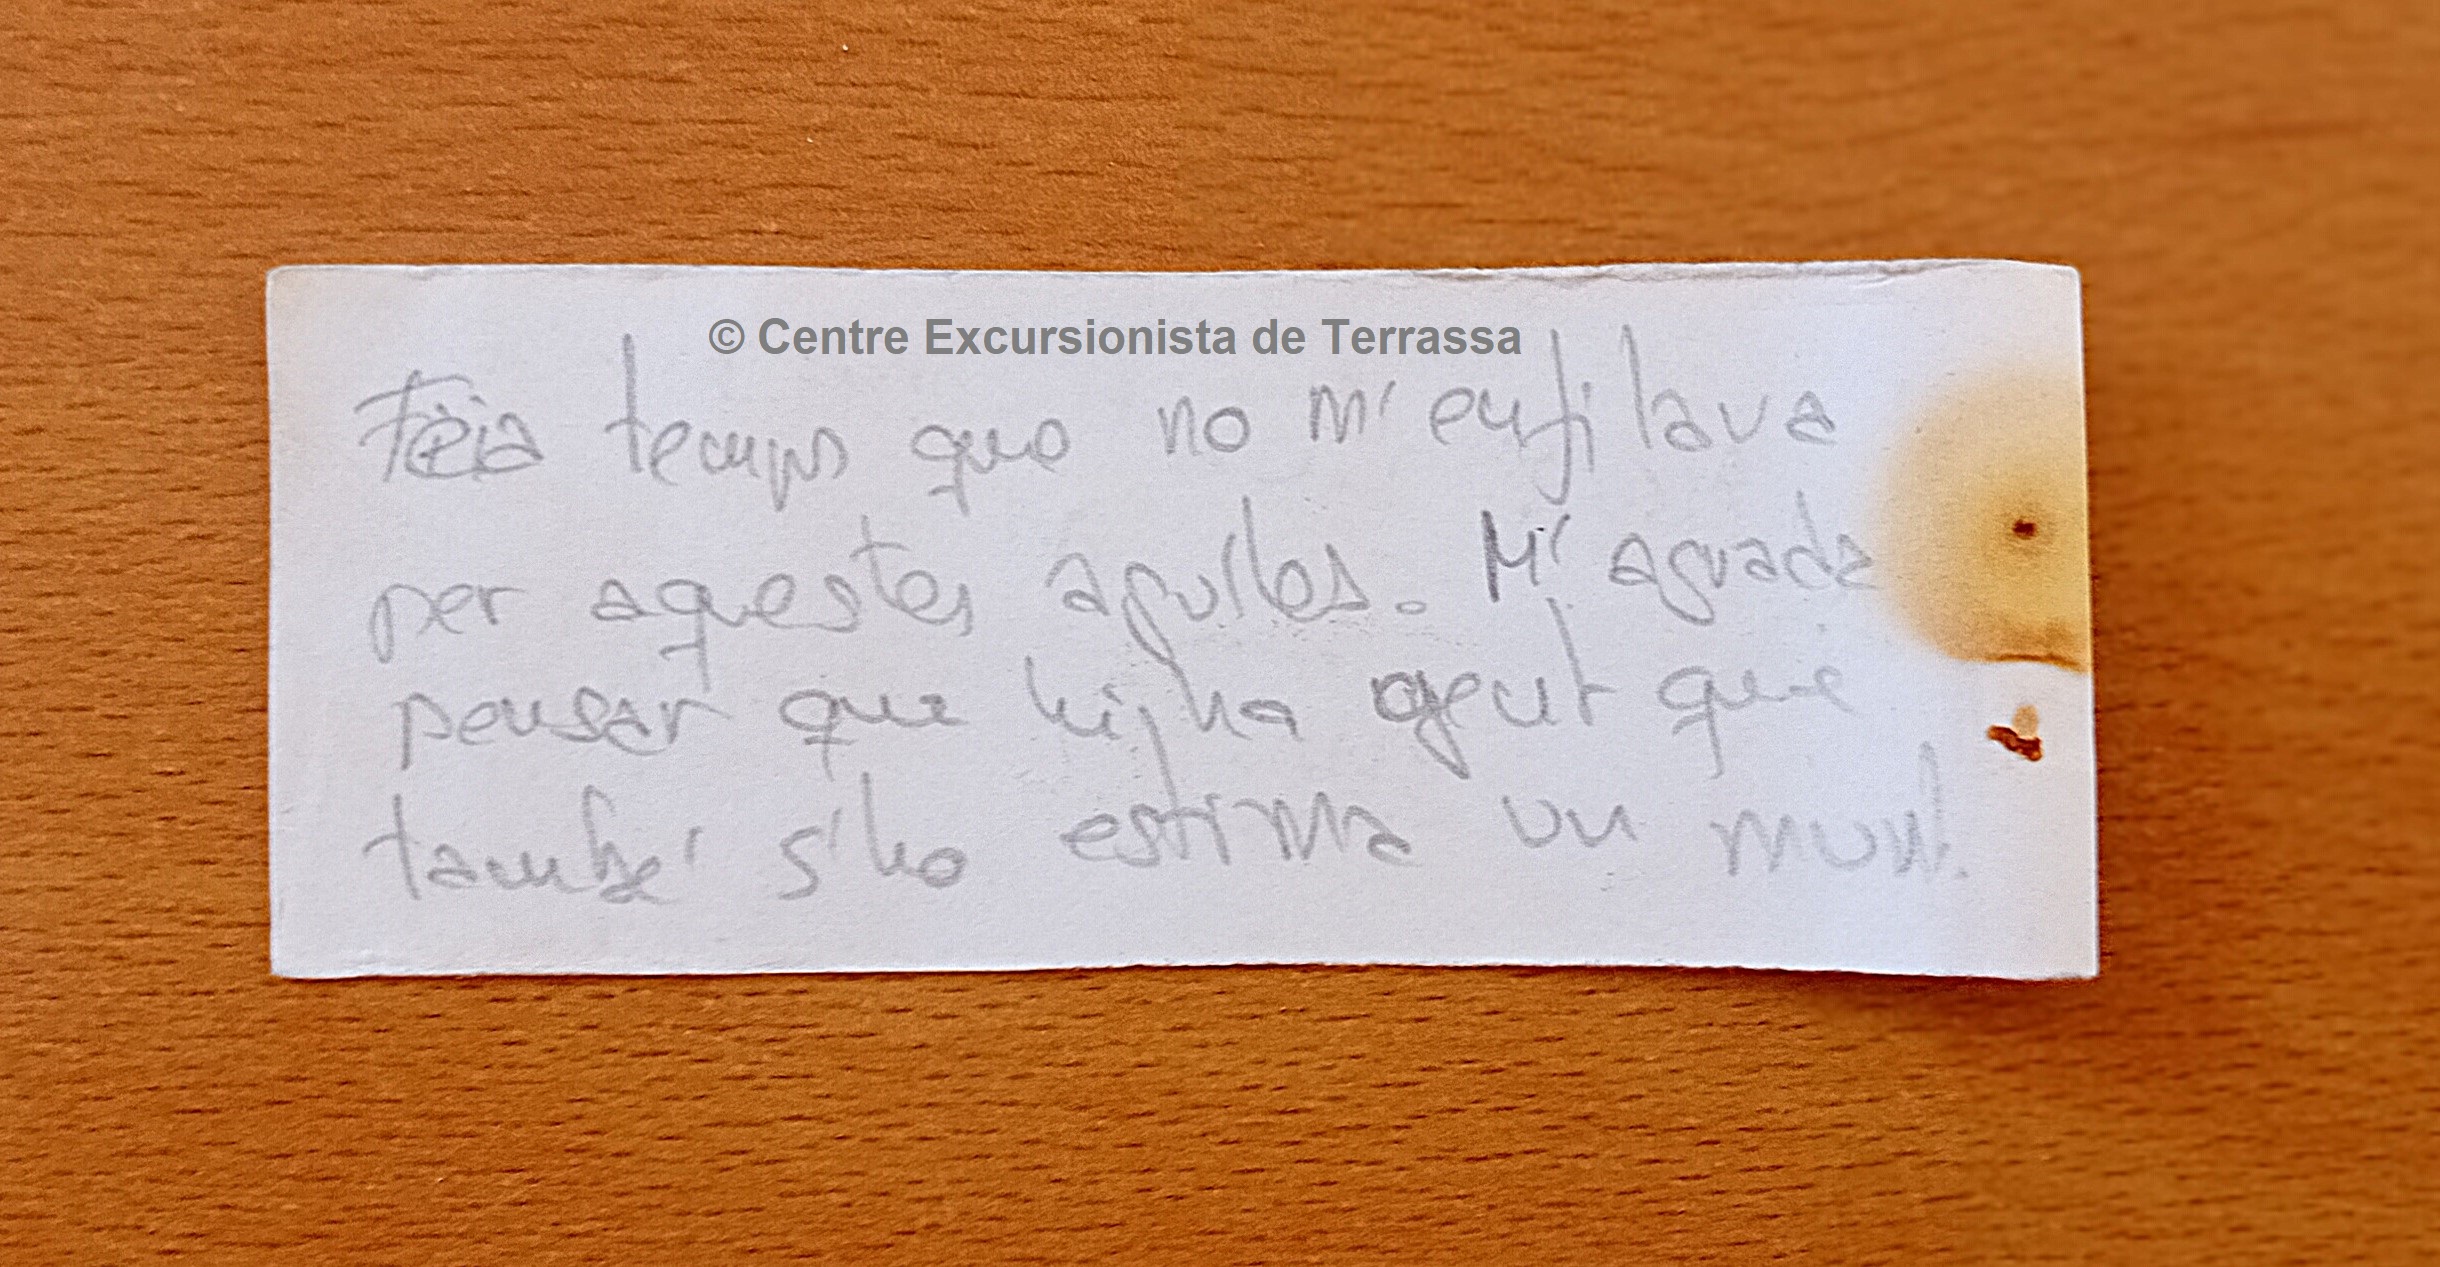 © Centre Excursionista de Terrassa
Feia temps que no m'enfilava
per aquestes agulles. M'agrada
pensar que hi ha gent que
també s'ho estima un munt.